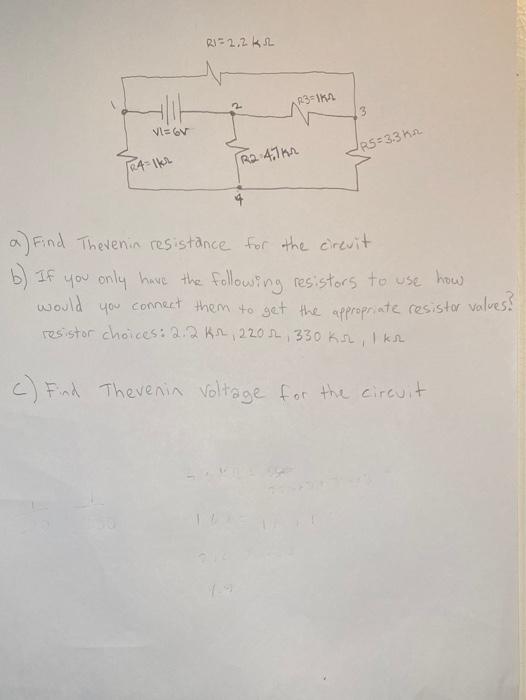 R1=2.2 kΩ
R3=1KΩ
1
2
3
V1=6V
R4=1kΩ
R2=4.7KΩ
R5=3.3KΩ
4
a) Find Thevenin resistance for the circuit
b) If you only have the following resistors to use how
would you connect them to get the appropriate resistor values?
resistor choices: 2.2 KΩ, 220 Ω, 330 KΩ, 1 kΩ
c) Find Thevenin Voltage for the circuit